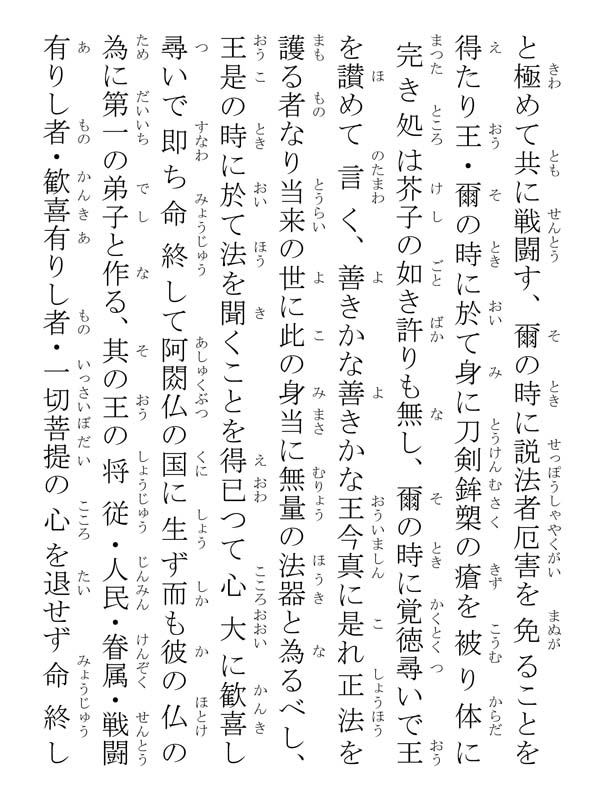 と極めて共に戦闘す、爾の時に説法者厄害を免ることを
得たり王・爾の時に於て身に刀剣鉾槊の瘡を被り体に
完き処は芥子の如き許りも無し、爾の時に覚徳尋いで王
を讃めて言く、善きかな善きかな王今真に是れ正法を
護る者なり当来の世に此の身当に無量の法器と為るべし、
王是の時に於て法を聞くことを得已つて心大に歓喜し
尋いで即ち命終して阿閦仏の国に生ず而も彼の仏の
為に第一の弟子と作る、其の王の将従・人民・眷属・戦闘
有りし者・歓喜有りし者・一切菩提の心を退せず命終し